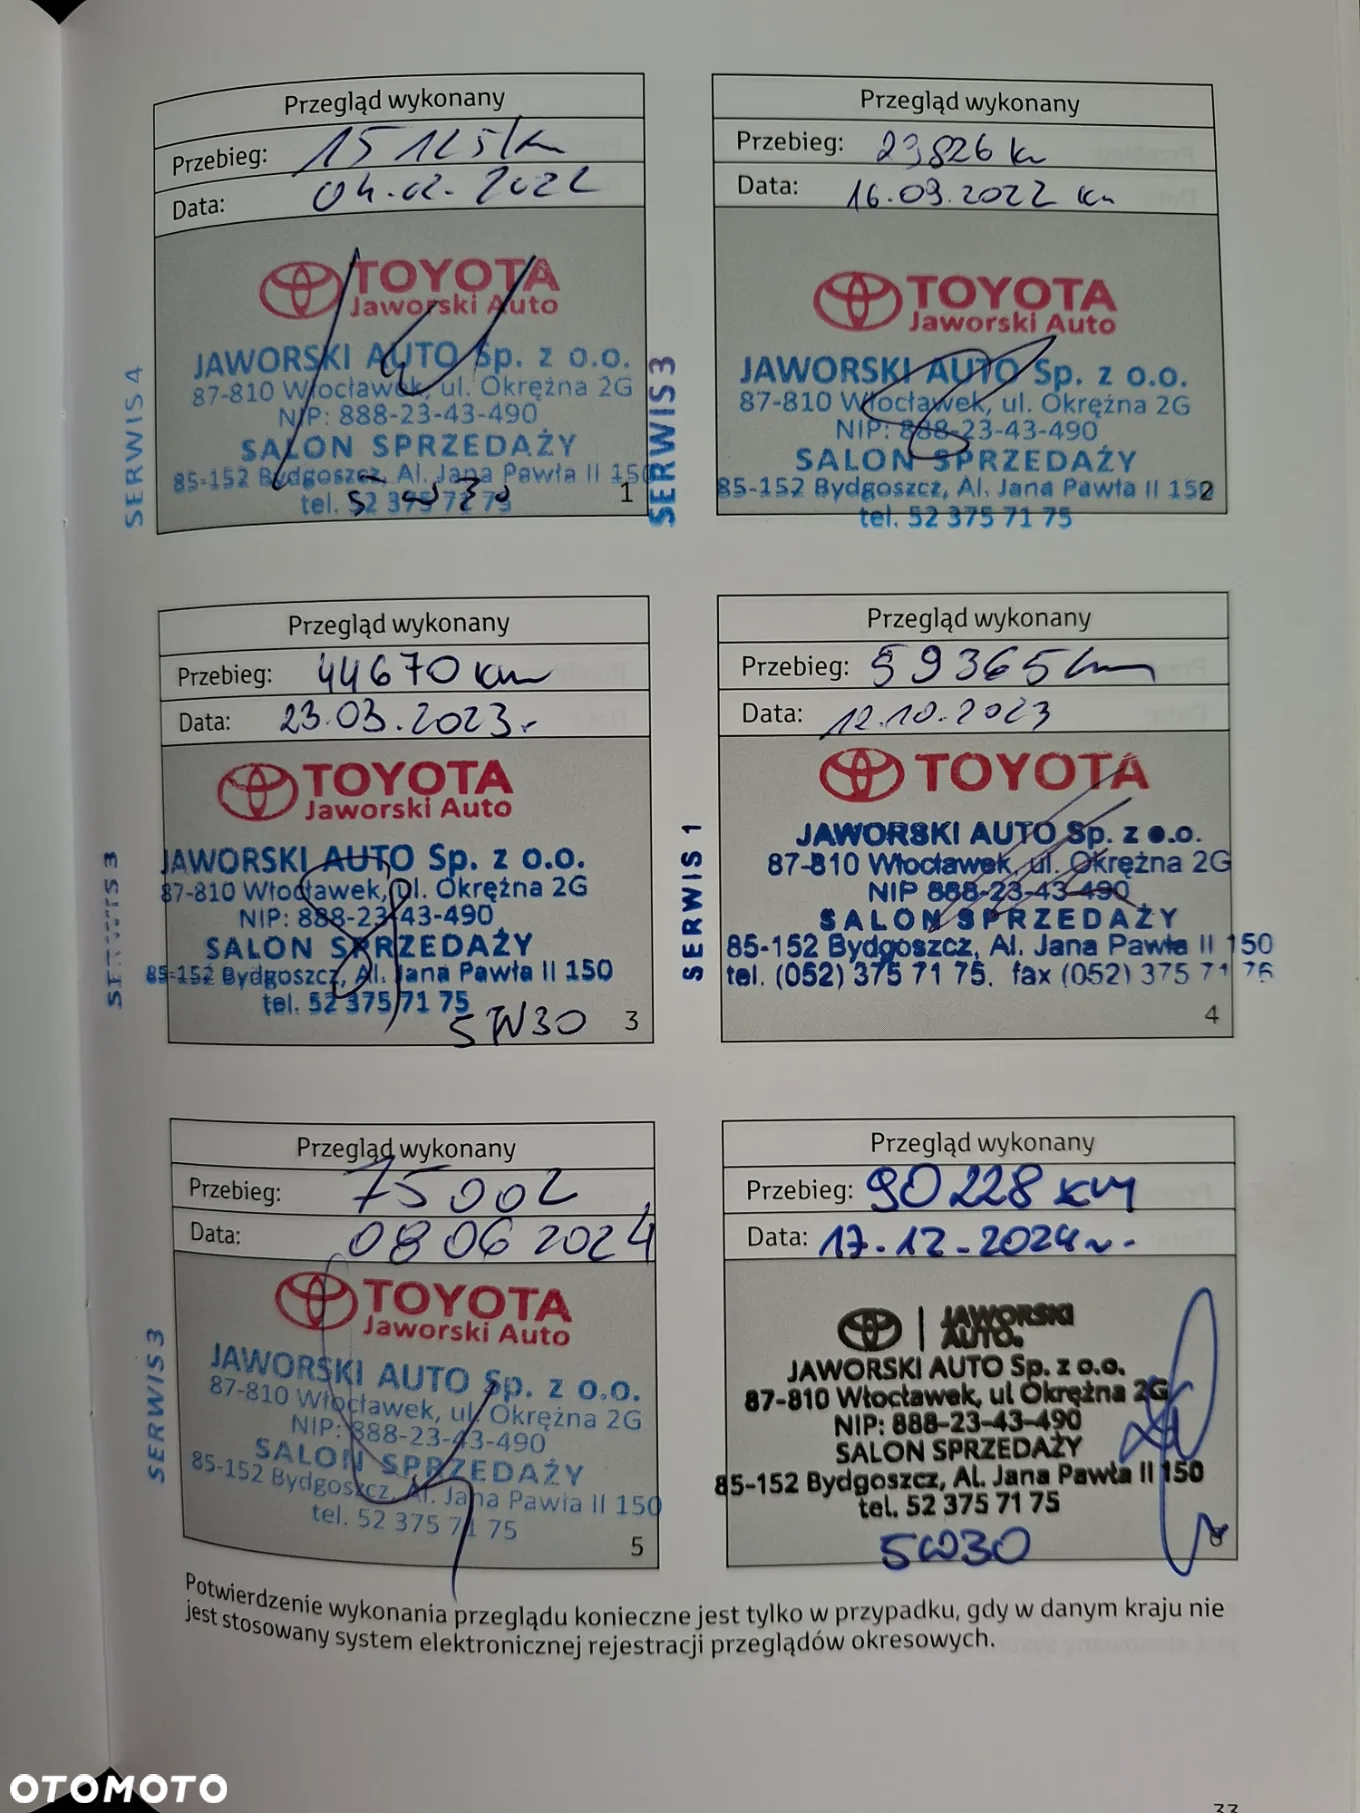 Przegląd wykonany
Przebieg: 15125 km
Data: 04.02.2022
TOYOTA
Jaworski Auto
JAWORSKI AUTO Sp. z o.o.
87-810 Włocławek, ul. Okrężna 2G
NIP: 888-23-43-490
SALON SPRZEDAŻY
85-152 Bydgoszcz, Al. Jana Pawła II 150
tel. 52 375 71 75
5w30
1
SERWIS 4
Przegląd wykonany
Przebieg: 23826 km
Data: 16.09.2022 km
TOYOTA
Jaworski Auto
JAWORSKI AUTO Sp. z o.o.
87-810 Włocławek, ul. Okrężna 2G
NIP: 888-23-43-490
SALON SPRZEDAŻY
85-152 Bydgoszcz, Al. Jana Pawła II 150
tel. 52 375 71 75
2
SERWIS 3
Przegląd wykonany
Przebieg: 44670 km
Data: 23.03.2023r.
TOYOTA
Jaworski Auto
JAWORSKI AUTO Sp. z o.o.
87-810 Włocławek, ul. Okrężna 2G
NIP: 888-23-43-490
SALON SPRZEDAŻY
85-152 Bydgoszcz, Al. Jana Pawła II 150
tel. 52 375 71 75
5W30
3
SERWIS 3
Przegląd wykonany
Przebieg: 59365 km
Data: 12.10.2023
TOYOTA
JAWORSKI AUTO Sp. z o.o.
87-810 Włocławek, ul. Okrężna 2G
NIP 888-23-43-490
SALON SPRZEDAŻY
85-152 Bydgoszcz, Al. Jana Pawła II 150
tel. (052) 375 71 75, fax (052) 375 71 76
4
SERWIS 1
Przegląd wykonany
Przebieg: 75002
Data: 08 06 2024
TOYOTA
Jaworski Auto
JAWORSKI AUTO Sp. z o.o.
87-810 Włocławek, ul. Okrężna 2G
NIP: 888-23-43-490
SALON SPRZEDAŻY
85-152 Bydgoszcz, Al. Jana Pawła II 150
tel. 52 375 71 75
5
SERWIS 3
Przegląd wykonany
Przebieg: 90228 km
Data: 17.12.2024r.
JAWORSKI
AUTO.
JAWORSKI AUTO Sp. z o.o.
87-810 Włocławek, ul Okrężna 2G
NIP: 888-23-43-490
SALON SPRZEDAŻY
85-152 Bydgoszcz, Al. Jana Pawła II 150
tel. 52 375 71 75
5W30
Potwierdzenie wykonania przeglądu konieczne jest tylko w przypadku, gdy w danym kraju nie
jest stosowany system elektronicznej rejestracji przeglądów okresowych.
OTOMOTO
33